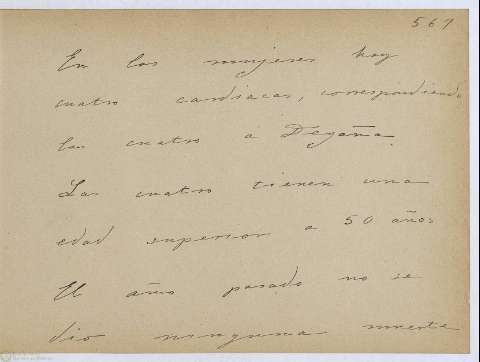 567
En las mujeres hay
cuatro cardiacas, correspondiendo
las cuatro a Degaña.
Las cuatro tienen una
edad superior a 50 años.
El año pasado no se
dio ninguna muerte